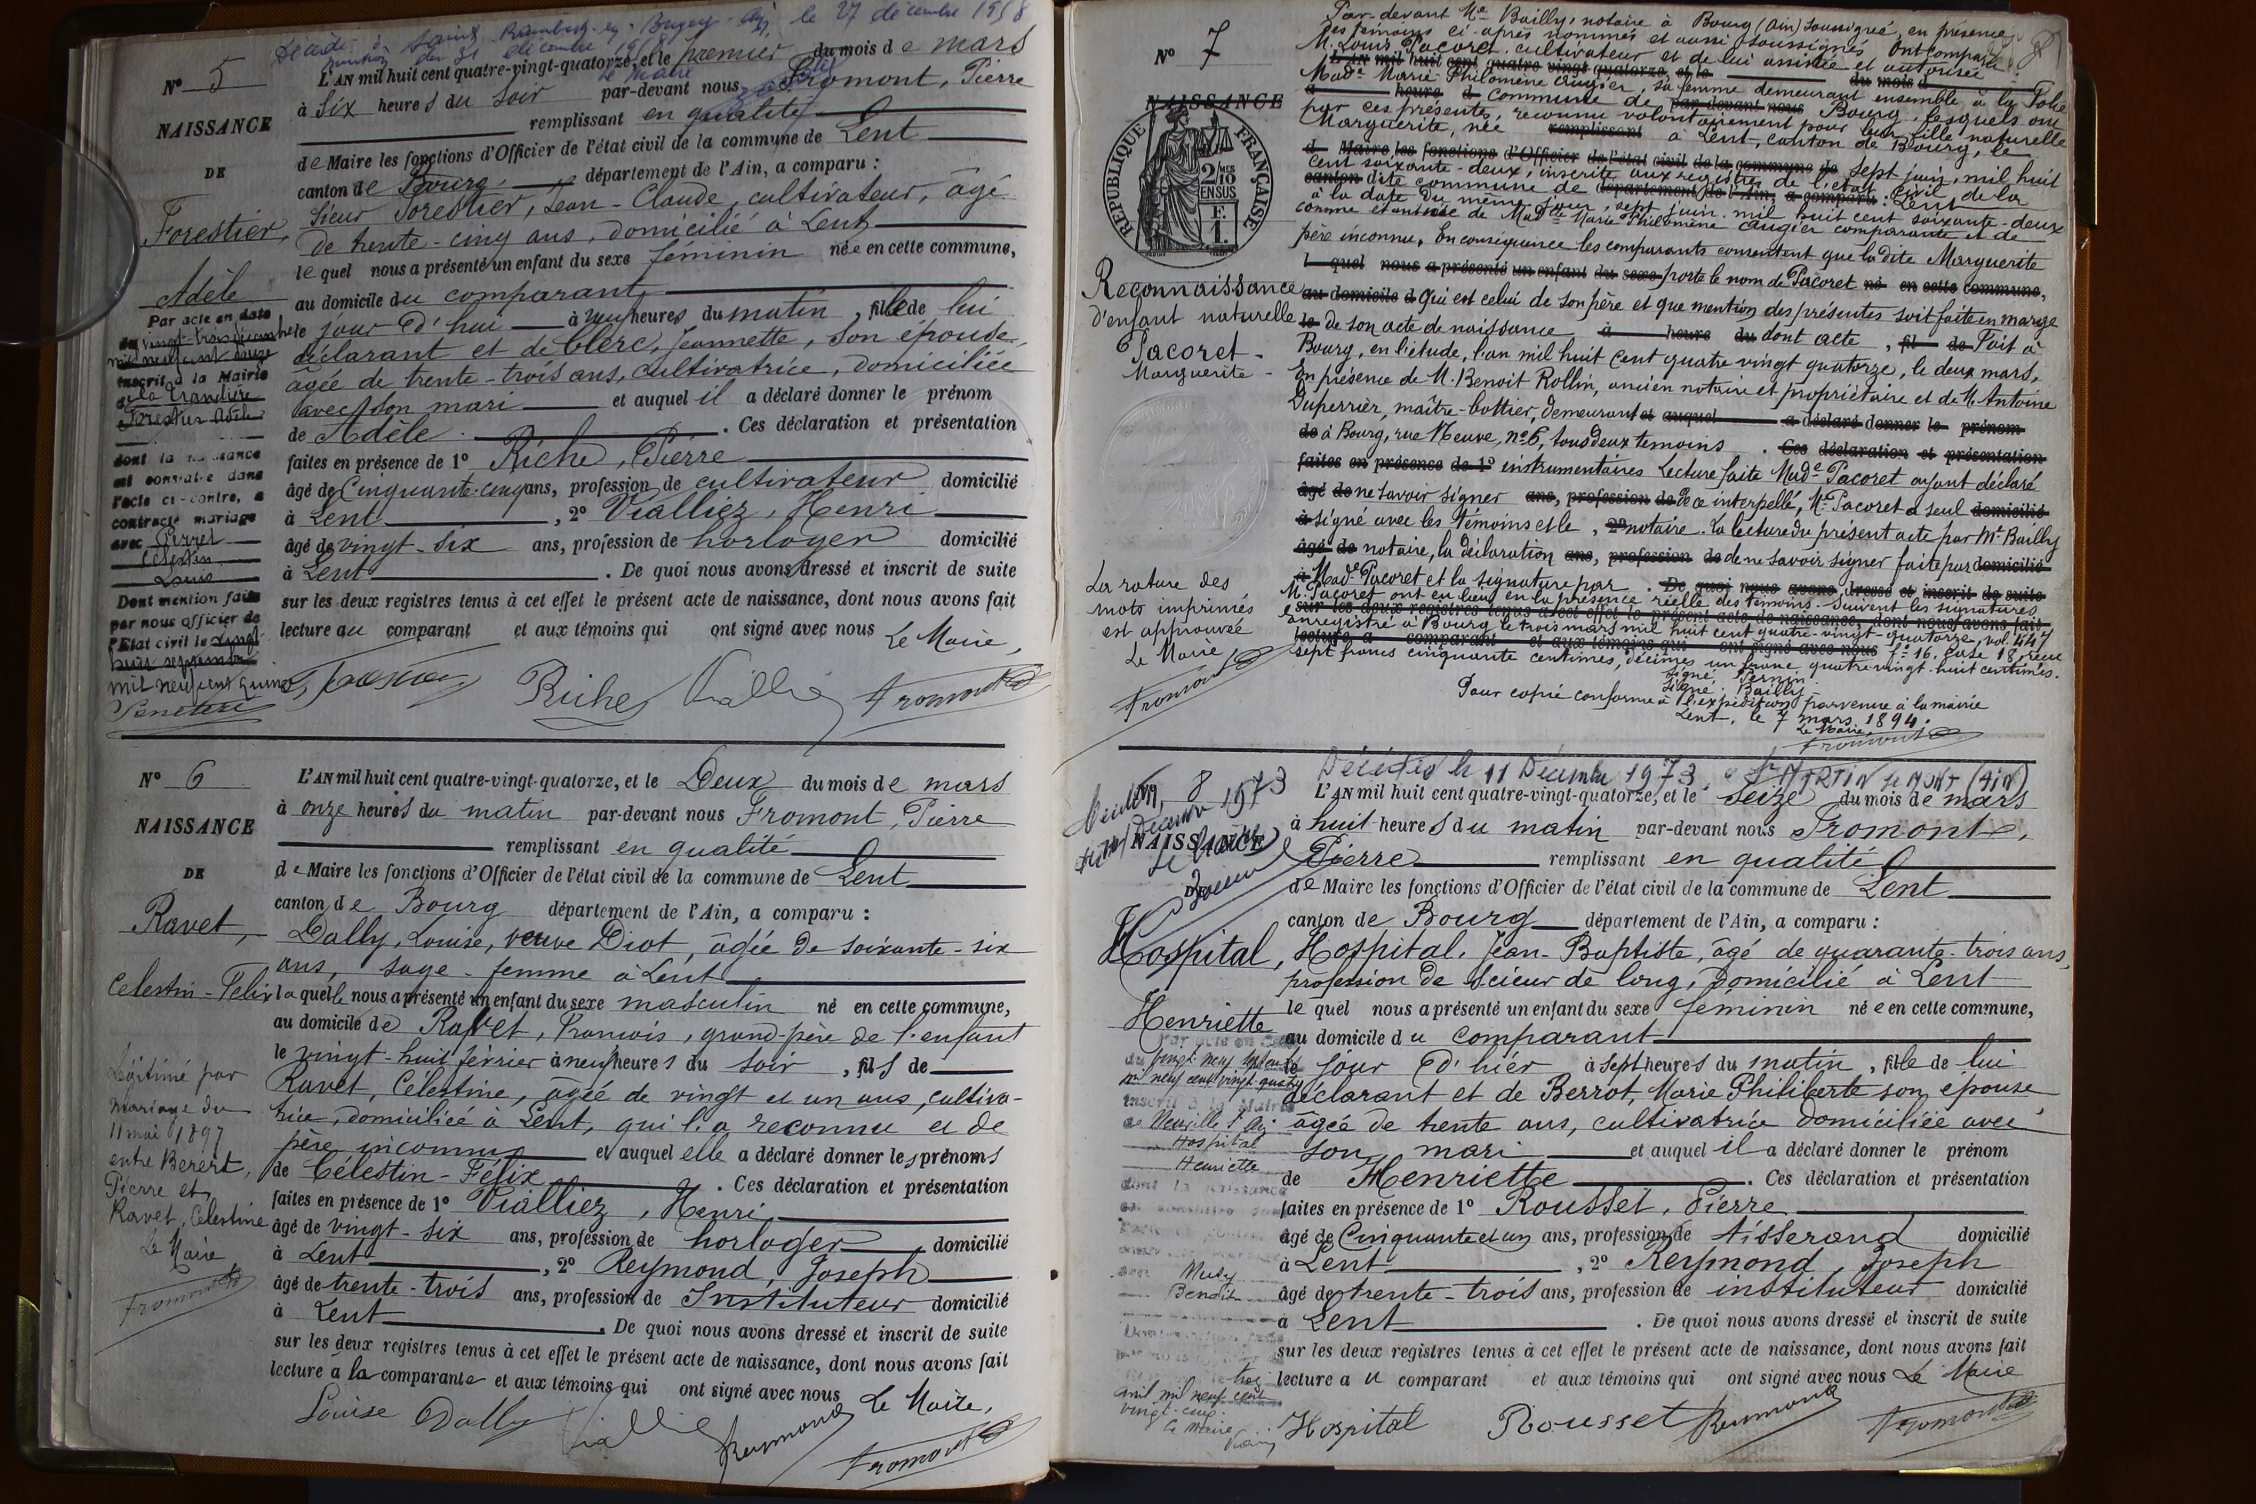 Décédée à Saint Rambert-en-Bugey Ain le 27 décembre 1958
mention du 31 décembre 1958
Le Maire
N° 5
NAISSANCE
DE
Forestier,
Adèle
Par acte en date
du vingt-trois décembre
mil neuf cent douze
inscrit à la Mairie
de la Tranclière
Forestier Adèle
dont la naissance
est constatée dans
l'acte ci-contre, a
contracté mariage
avec Perret
Célestin
Louis
Dont mention faite
par nous officier de
l'Etat civil le vingt
huit septembre
mil neuf cent quinze
L'AN mil huit cent quatre-vingt-quatorze, et le premier du mois de mars
à Six heures du soir par-devant nous Fromont, Pierre
remplissant en qualité
de Maire les fonctions d'Officier de l'état civil de la commune de Lent
canton de Bourg département de l'Ain, a comparu :
Sieur Forestier, Jean-Claude, cultivateur, âgé
de trente-cinq ans, domicilié à Lent
lequel nous a présenté un enfant du sexe féminin née en cette commune,
au domicile du comparant
le jour d'hui à neuf heures du matin, fille de lui
déclarant et de Clerc, Jeannette, son épouse,
âgée de trente-trois ans, cultivatrice, domiciliée
avec son mari et auquel il a déclaré donner le prénom
de Adèle. Ces déclaration et présentation
faites en présence de 1° Riche, Pierre
âgé de Cinquante-cinq ans, profession de cultivateur domicilié
à Lent, 2° Vialliez, Henri
âgé de vingt-six ans, profession de horloger domicilié
à Lent. De quoi nous avons dressé et inscrit de suite
sur les deux registres tenus à cet effet le présent acte de naissance, dont nous avons fait
lecture au comparant et aux témoins qui ont signé avec nous Le Maire,
Riche Fromont
N° 6
NAISSANCE
DE
Ravet,
Celestin-Felix
Légitimé par
mariage du
11 mai 1897
entre Berert,
Pierre et
Ravet, Celestine
Le Maire
Fromont
L'AN mil huit cent quatre-vingt-quatorze, et le Deux du mois de mars
à onze heures du matin par-devant nous Fromont, Pierre
remplissant en qualité
de Maire les fonctions d'Officier de l'état civil de la commune de Lent
canton de Bourg département de l'Ain, a comparu :
Dally, Louise, veuve Diot, âgée de soixante-six
ans, sage-femme à Lent
laquelle nous a présenté un enfant du sexe masculin né en cette commune,
au domicile de Ravet, François, grand-père de l'enfant
le vingt-huit février à neuf heures du soir, fils de
Ravet, Célestine, âgée de vingt et un ans, cultiva-
trice, domiciliée à Lent, qui l'a reconnu et de
père inconnu et auquel elle a déclaré donner les prénoms
de Célestin-Félix. Ces déclaration et présentation
faites en présence de 1° Vialliez, Henri
âgé de vingt-six ans, profession de horloger domicilié
à Lent, 2° Reymond, Joseph
âgé de trente-trois ans, profession de Instituteur domicilié
à Lent. De quoi nous avons dressé et inscrit de suite
sur les deux registres tenus à cet effet le présent acte de naissance, dont nous avons fait
lecture à la comparante et aux témoins qui ont signé avec nous Le Maire,
Louise Dally Reymond Fromont
N° 7
NAISSANCE
REPUBLIQUE FRANÇAISE
2/10 EN SUS
Reconnaissance
d'enfant naturelle
Pacoret
Marguerite
La rature des
mots imprimés
est approuvée
Le Maire
Fromont
Par-devant Me Bailly, notaire à Bourg (Ain) soussigné, en présence
des témoins ci-après nommés et aussi soussignés ont comparu
M. Louis Pacoret, cultivateur et de lui assistée et autorisée
Made Marie Philomène Augier, sa femme demeurant ensemble à la Folie
commune de Bourg, lesquels ont
par ces présentes, reconnu volontairement pour leur fille naturelle
Marguerite, née à Lent, canton de Bourg, le
sept juin, mil huit
cent soixante-deux, inscrite aux registres de l'état civil de la
dite commune de Lent
à la date du même jour, sept juin mil huit cent soixante-deux
comme étant née de Madlle Marie Philomène Augier comparante et de
père inconnu. En conséquence les comparants consentent que la dite Marguerite
porte le nom de Pacoret
qui est celui de son père et que mention des présentes soit faite en marge
de son acte de naissance dont acte, Fait à
Bourg, en l'étude, l'an mil huit cent quatre vingt quatorze, le deux mars,
En présence de M. Benoit Rollin, ancien notaire et propriétaire et de M. Antoine
Duperrier, maître-bottier, demeurant
à Bourg, rue Neuve, n° 6, tous deux témoins
instrumentaires Lecture faite Made Pacoret ayant déclaré
ne savoir signer de ce interpellé, M. Pacoret a seul
signé avec les témoins et le notaire. La lecture du présent acte par Me Bailly
notaire, la déclaration de ne savoir signer faite par
Made Pacoret et la signature par
M. Pacoret ont eu lieu en la présence réelle des témoins. Suivent les signatures
enregistré à Bourg le trois mars mil huit cent quatre-vingt-quatorze, vol. 447
f° 16, case 18, reçu
sept francs cinquante centimes, décimes un franc quatre vingt-huit centimes.
Signé Pernin
Signé: Bailly
Pour copie conforme à l'expédition parvenue à la mairie
Lent, le 7 mars 1894.
Le Maire
Fromont
Décédée le 11 Décembre 1973 à St MARTIN du MONT (AIN)
N° 8
NAISSANCE
Hospital,
Henriette
vingt neuf
mil neuf cent vingt-quatre
inscrit à la Mairie
de Neuville s/ Ain
Hospital
Henriette
dont la naissance
Benoit
mil neuf cent
vingt-cinq
Le Maire
L'AN mil huit cent quatre-vingt-quatorze, et le Seize du mois de mars
à huit heures du matin par-devant nous Fromont,
Pierre remplissant en qualité
de Maire les fonctions d'Officier de l'état civil de la commune de Lent
canton de Bourg département de l'Ain, a comparu :
Hospital, Jean-Baptiste, âgé de quarante-trois ans,
profession de Scieur de long, domicilié à Lent
lequel nous a présenté un enfant du sexe féminin née en cette commune,
au domicile du comparant
le jour d'hier à sept heures du matin, fille de lui
déclarant et de Berrot, Marie Philiberte son épouse
âgée de trente ans, cultivatrice domiciliée avec
son mari et auquel il a déclaré donner le prénom
de Henriette. Ces déclaration et présentation
faites en présence de 1° Rousset, Pierre
âgé de Cinquante et un ans, profession de tisserand domicilié
à Lent, 2° Reymond, Joseph
âgé de trente-trois ans, profession de instituteur domicilié
à Lent. De quoi nous avons dressé et inscrit de suite
sur les deux registres tenus à cet effet le présent acte de naissance, dont nous avons fait
lecture au comparant et aux témoins qui ont signé avec nous Le Maire
Hospital Rousset Reymond Fromont